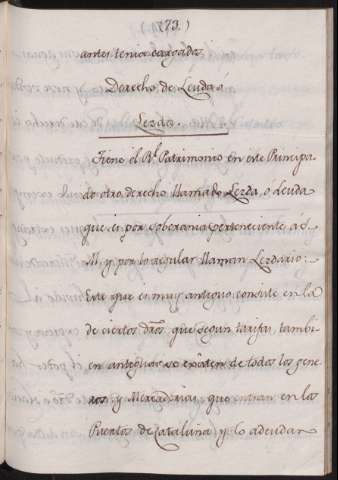 (73.)
antes tenia cargada.
Derecho de Leuda ó
Lezda.
Tiene el Rl. Patrimonio en este Principa
do otro derecho llamado Lezda, ó Leuda
que es por soberania perteneciente á S.
M. y por lo regular llaman Lezdario:
Este que es muy antiguo consiste en la
de ciertos dros. que segun tarifas, tambi
en antiguas se exîgen de todos los gene
ros, y Mercadurias, que entran en los
Puertos de Cataluña, y lo adeudan